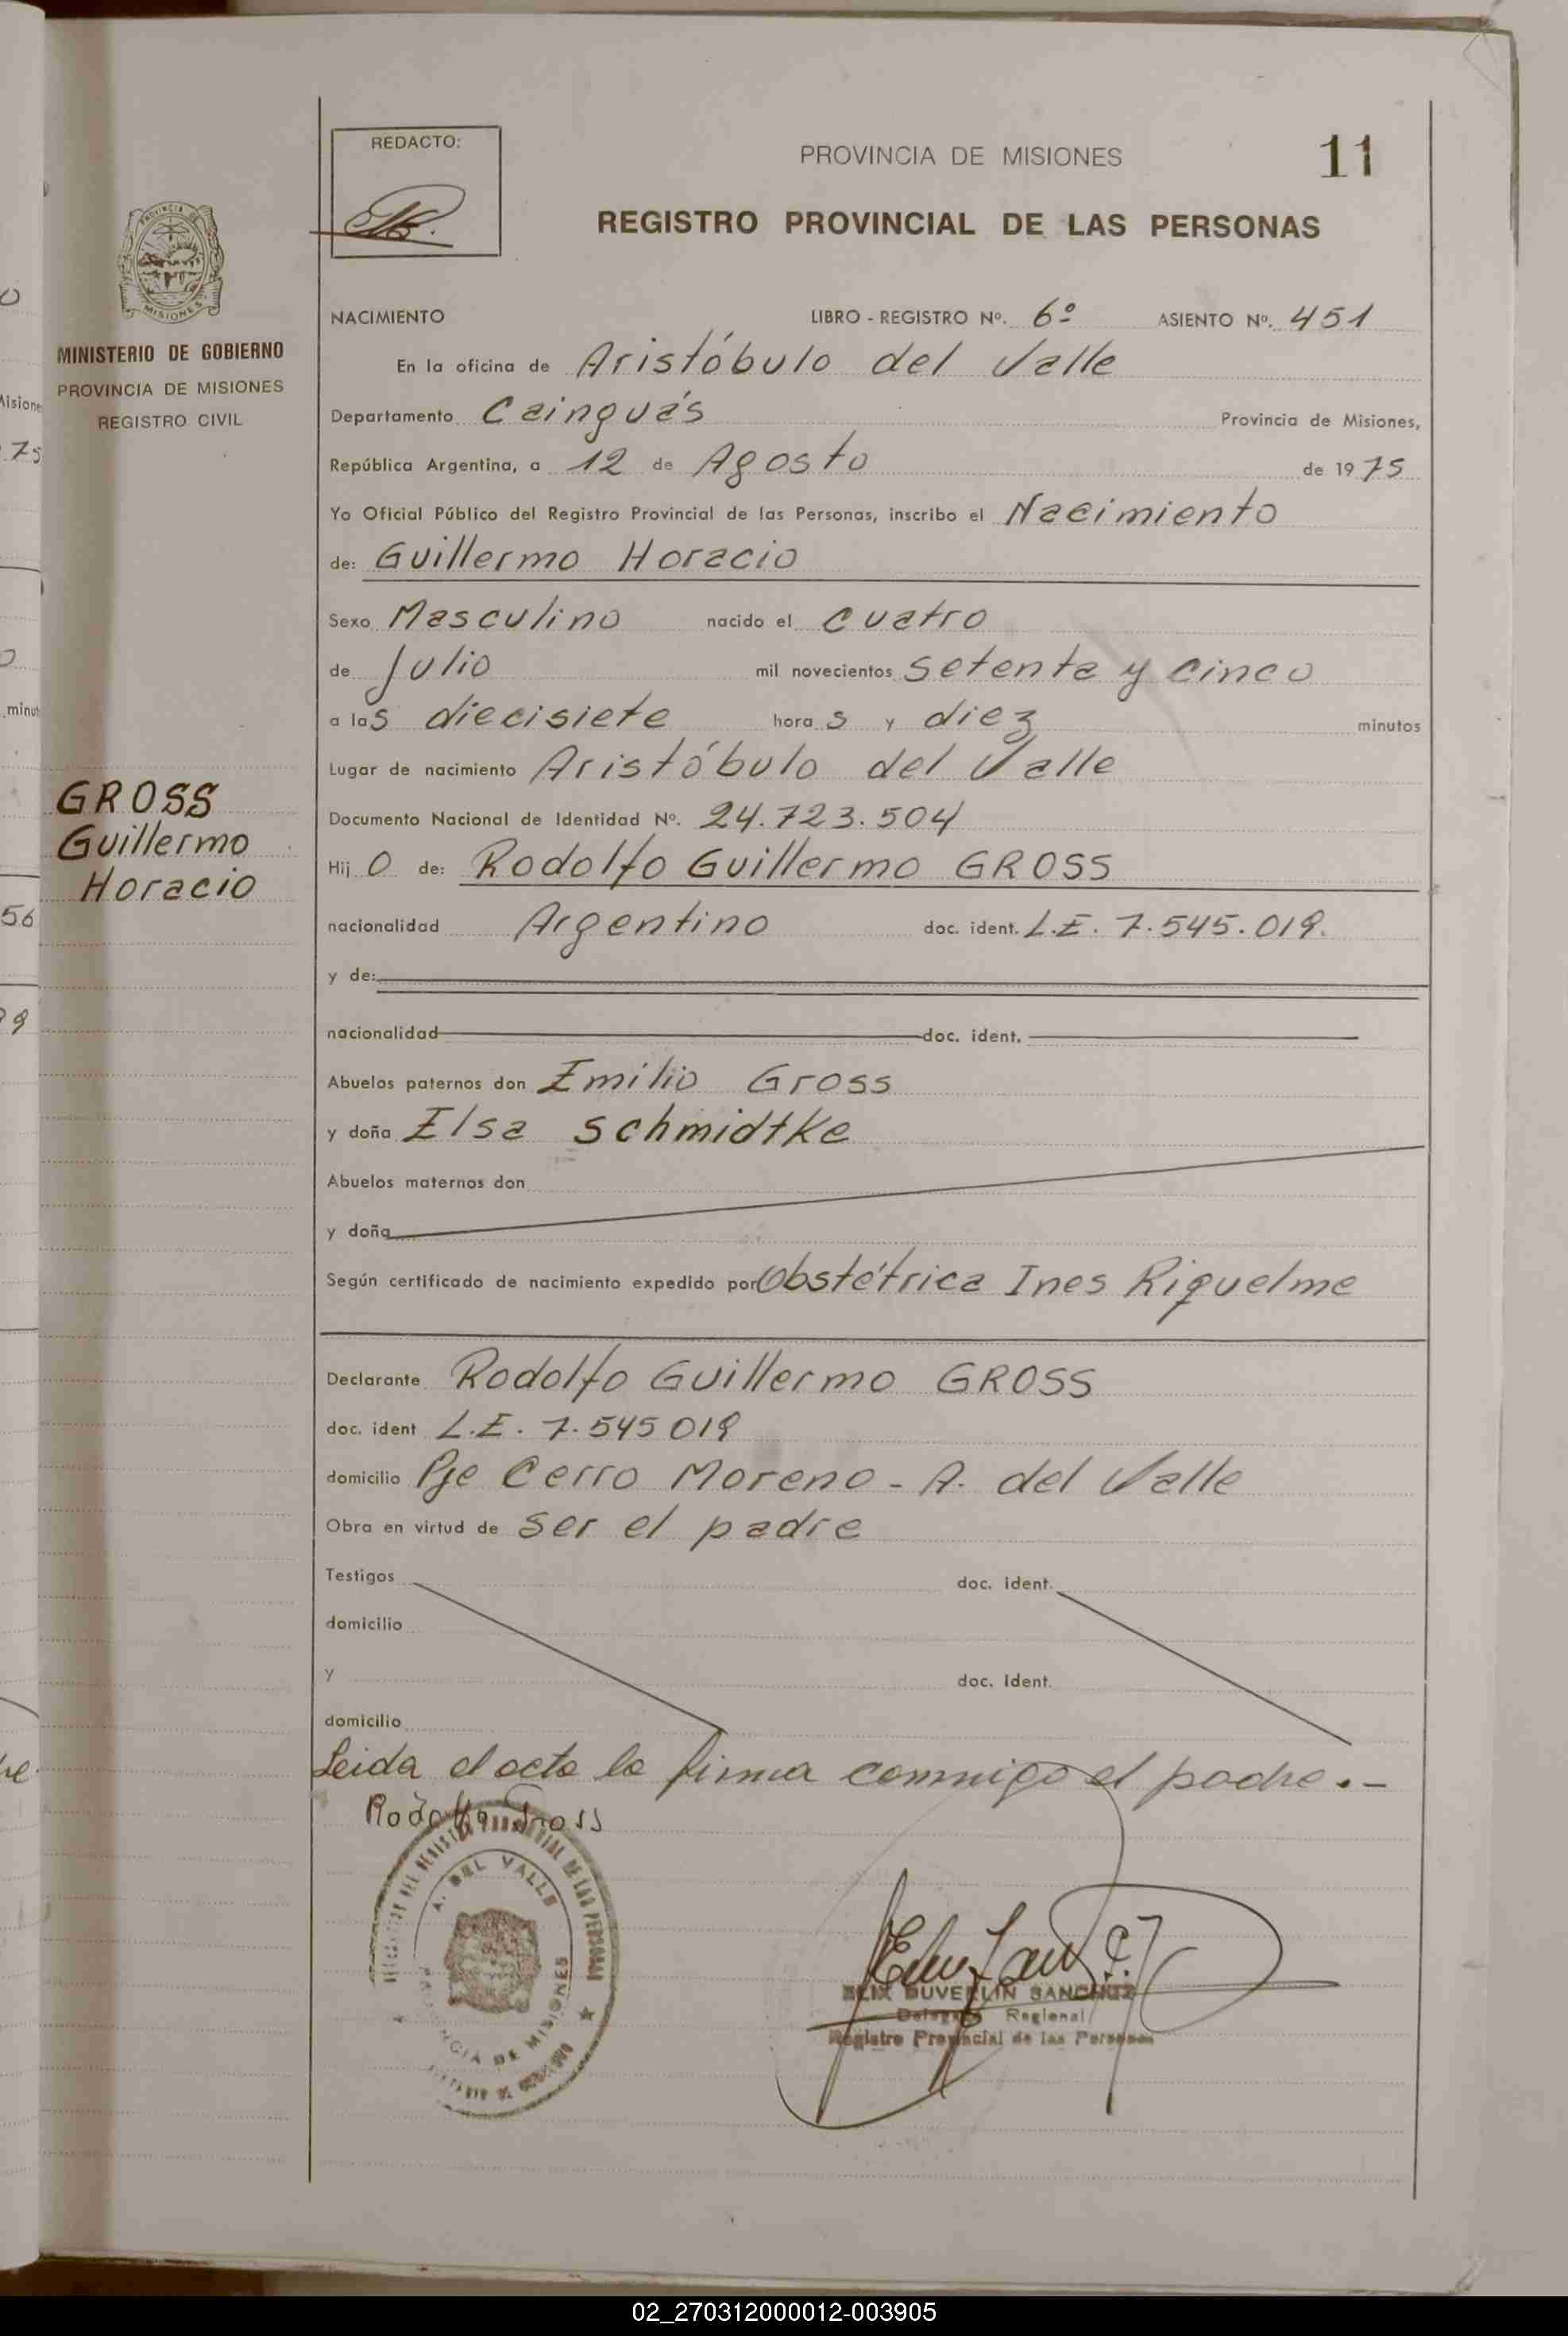 REDACTO:
PROVINCIA DE MISIONES
11
REGISTRO PROVINCIAL DE LAS PERSONAS
PROVINCIA DE
MISIONES
MINISTERIO DE GOBIERNO
PROVINCIA DE MISIONES
REGISTRO CIVIL
GROSS
Guillermo
Horacio
NACIMIENTO LIBRO - REGISTRO Nº. 6º ASIENTO Nº. 451
En la oficina de Aristóbulo del Valle
Departamento Cainguás Provincia de Misiones,
República Argentina, a 12 de Agosto de 1975
Yo Oficial Público del Registro Provincial de las Personas, inscribo el Nacimiento
de: Guillermo Horacio
Sexo Masculino nacido el cuatro
de Julio mil novecientos setenta y cinco
a las diecisiete horas y diez minutos
Lugar de nacimiento Aristóbulo del Valle
Documento Nacional de Identidad Nº. 24.723.504
Hijo de: Rodolfo Guillermo GROSS
nacionalidad Argentino doc. ident. L.E. 7.545.019.
y de:
nacionalidad doc. ident.
Abuelos paternos don Emilio Gross
y doña Elsa Schmidtke
Abuelos maternos don
y doña
Según certificado de nacimiento expedido por Obstétrica Ines Riquelme
Declarante Rodolfo Guillermo GROSS
doc. ident L.E. 7.545019
domicilio Pje Cerro Moreno - A. del Valle
Obra en virtud de ser el padre
Testigos doc. ident.
domicilio
y doc. Ident.
domicilio
Leida el acta la firma conmigo el padre.-
Rodolfo Gross
A. DEL VALLE
PROVINCIA DE MISIONES
DUVERLIN SANCHEZ
Delegado Regional
Registro Provincial de las Personas
02_270312000012-003905